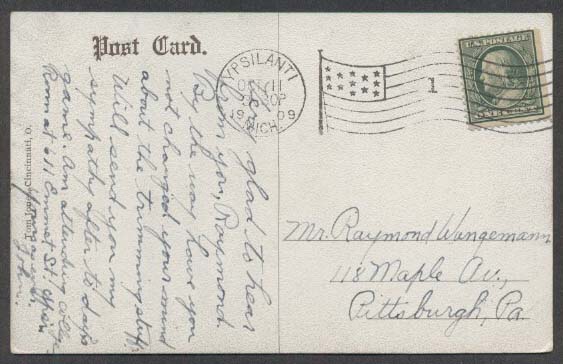 Post Card.
YPSILANTI
OCT 11
1909
MICH.
1
U.S. POSTAGE
ONE CENT
Very glad to hear
from you, Raymond.
By the way have you
not changed your mind
about the trimming stuff.
Will send you my
sympathy after to day's
game. Am attending
Room at 611 Emmet St.
John.
Mr. Raymond Wangemann
118 Maple Av.,
Pittsburgh, Pa.
Tom Jones, Cincinnati, O.